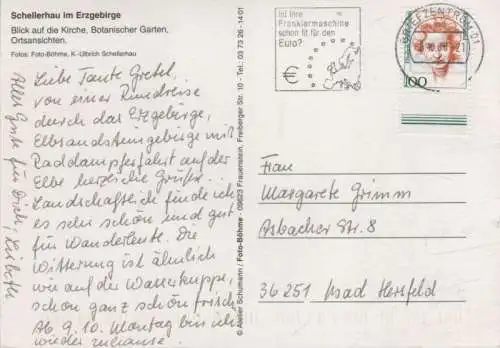 Schellerhau im Erzgebirge
Blick auf die Kirche, Botanischer Garten,
Ortsansichten.
Fotos: Foto-Böhme, K.-Ulbrich Schellerhau
Liebe Tante Gretel
von einer Rundreise
durch das Erzgebirge,
Elbsandsteingebirge mit
Raddampferfahrt auf der
Elbe herzliche Grüße.
Landschaftlich finde ich
es sehr schön und gut
für Wanderleute. Die
Witterung ist ähnlich
wie auf der Wasserkuppe,
schon ganz schön frisch
Ab 9.10. Montag bin ich
wieder zuhause.
Alles Gute für Dich, Lisbeth
© Atelier Schumann / Foto-Böhme - 09623 Frauenstein, Freiberger Str. 10 - Tel. 03 73 26 - 14 01
Ist Ihre
Frankiermaschine
schon fit für den
Euro?
€
BRIEFZENTRUM 01
21
100
Frau
Margarete Grimm
Asbacher Str. 8
36251 Bad Hersfeld